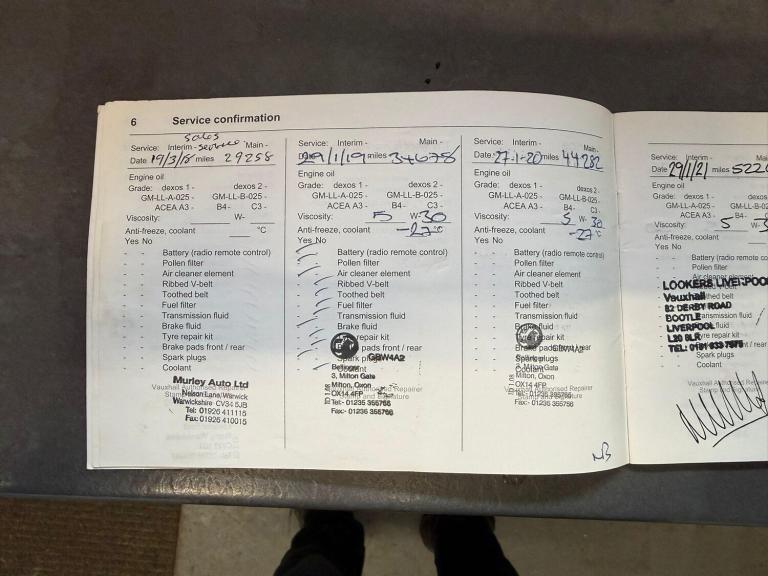 6 Service confirmation
sales
Service: Interim - service Main -
Date 19/3/18 miles 29258
Engine oil
Grade: dexos 1 - dexos 2 -
GM-LL-A-025 - GM-LL-B-025 -
ACEA A3 - B4- C3 -
Viscosity: W-
Anti-freeze, coolant °C
Yes No
- - Battery (radio remote control)
- - Pollen filter
- - Air cleaner element
- - Ribbed V-belt
- - Toothed belt
- - Fuel filter
- - Transmission fluid
- - Brake fluid
- - Tyre repair kit
- - Brake pads front / rear
- - Spark plugs
- - Coolant
Murley Auto Ltd
Vauxhall Authorised Repairer
Nelson Lane, Warwick
Warwickshire CV34 5JB
Tel: 01926 411115
Fax: 01926 410015
Service: Interim - Main -
Date 29/1/19 miles 34678
Engine oil
Grade: dexos 1 - dexos 2 -
GM-LL-A-025 - GM-LL-B-025 -
ACEA A3 - B4- C3 -
Viscosity: 5 W-30
Anti-freeze, coolant -27 °C
Yes No
Battery (radio remote control)
Pollen filter
Air cleaner element
Ribbed V-belt
Toothed belt
Fuel filter
Transmission fluid
Brake fluid
Tyre repair kit
Brake pads front / rear
GBW4A2
Spark plugs
Coolant
3, Milton Gate
Milton, Oxon
OX14 4FP
Tel:- 01235 355766
Fax:- 01235 355766
Service: Interim - Main -
Date 27-1-20 miles 44282
Engine oil
Grade: dexos 1 - dexos 2 -
GM-LL-A-025 - GM-LL-B-025 -
ACEA A3 - B4- C3 -
Viscosity: 5 W-30
Anti-freeze, coolant -27 °C
Yes No
- - Battery (radio remote control)
- - Pollen filter
- - Air cleaner element
- - Ribbed V-belt
- - Toothed belt
- - Fuel filter
- - Transmission fluid
- - Brake fluid
- - Tyre repair kit
- - Brake pads front / rear
GBW4A2
- - Spark plugs
- - Coolant
3, Milton Gate
Milton, Oxon
OX14 4FP
Tel:- 01235 355766
Fax:- 01235 355766
NB
Service: Interim -
Date 29/1/21 miles 522
Engine oil
Grade: dexos 1 - dexos 2
GM-LL-A-025 - GM-LL-B-0
ACEA A3 - B4-
Viscosity: 5 W-3
Anti-freeze, coolant
Yes No
Battery (radio remote co
Pollen filter
Air cleaner element
LOOKERS LIVERPOOL
Vauxhall
82 DERBY ROAD
BOOTLE
LIVERPOOL
L20 8LR
TEL: 0151 933 7575
Spark plugs
Coolant